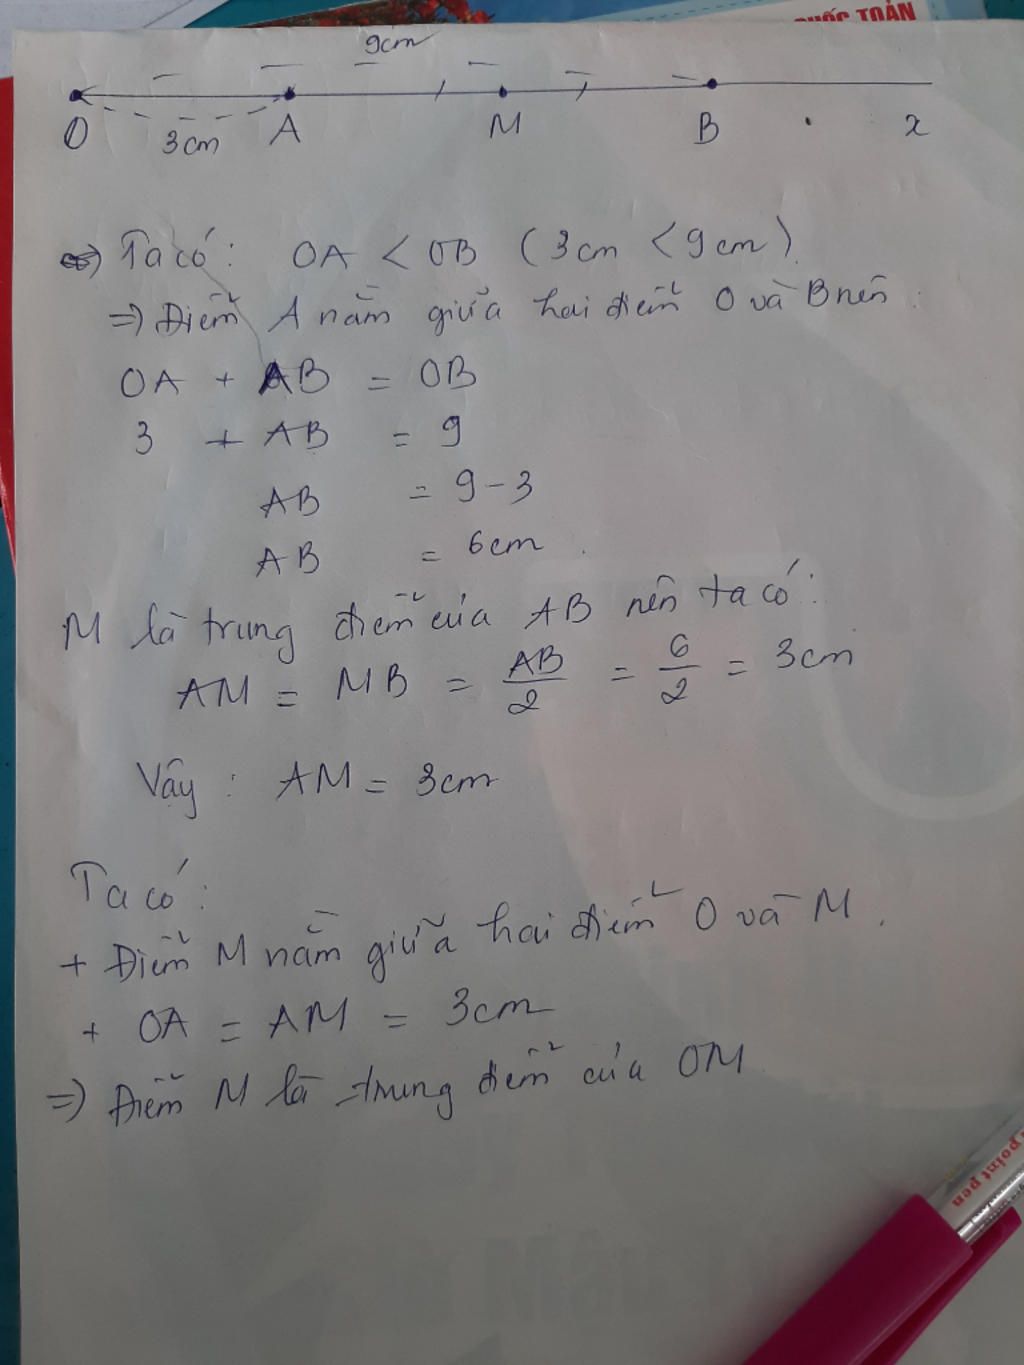 QUỐC TOẢN
9cm
O 3cm A M B x
=> Ta có: OA < OB (3cm < 9cm).
=> Điểm A nằm giữa hai điểm O và B nên:
OA + AB = OB
3 + AB = 9
AB = 9 - 3
AB = 6cm.
M là trung điểm của AB nên ta có:
AM = MB = AB/2 = 6/2 = 3cm
Vậy: AM = 3cm
Ta có:
+ Điểm M nằm giữa hai điểm O và M.
+ OA = AM = 3cm
=> Điểm M là trung điểm của OM
point pen